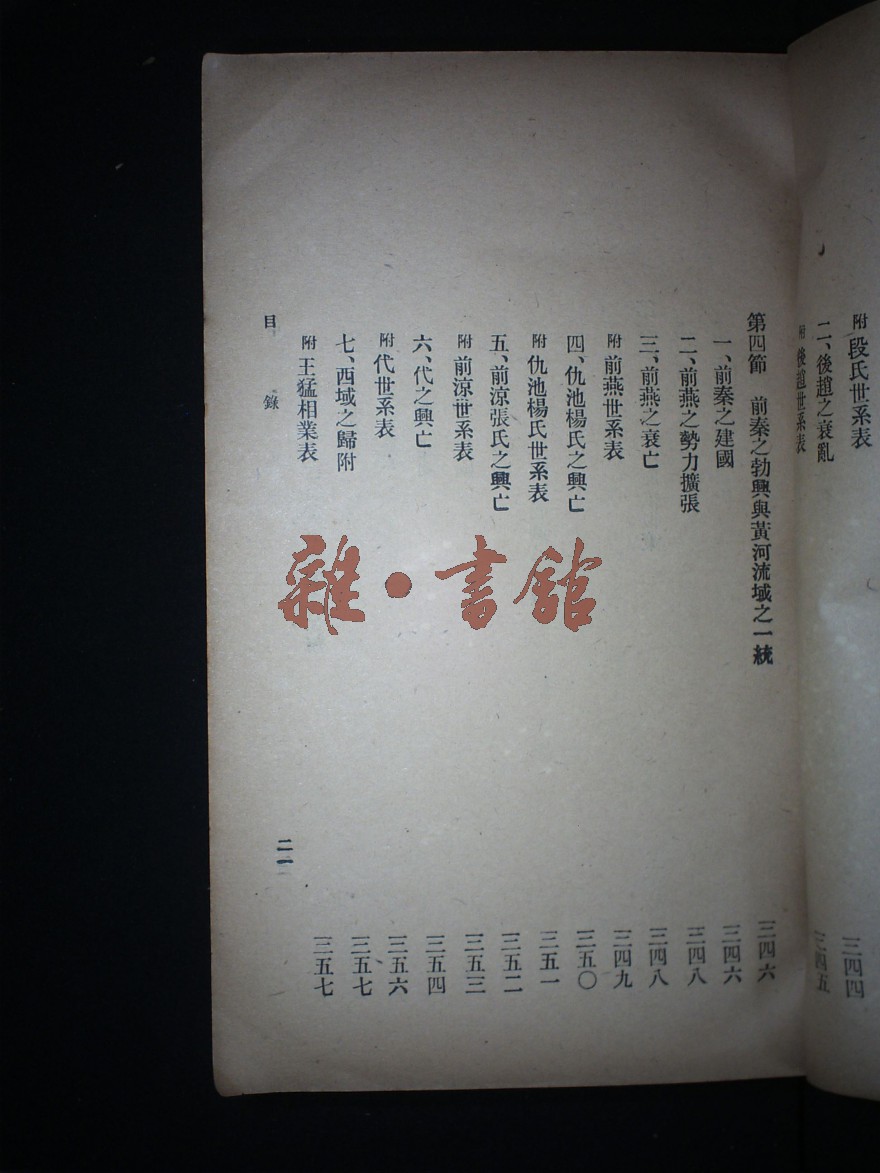 附 段氏世系表 三四四
二、後趙之衰亂 三四五
附 後趙世系表
第四節 前秦之勃興與黃河流域之一統 三四六
一、前秦之建國 三四六
二、前燕之勢力擴張 三四八
三、前燕之衰亡 三四八
附 前燕世系表 三四九
四、仇池楊氏之興亡 三五〇
附 仇池楊氏世系表 三五一
五、前涼張氏之興亡 三五二
附 前涼世系表 三五三
六、代之興亡 三五四
附 代世系表 三五六
七、西域之歸附 三五七
附 王猛相業表 三五七
目錄
二一
雜·書館